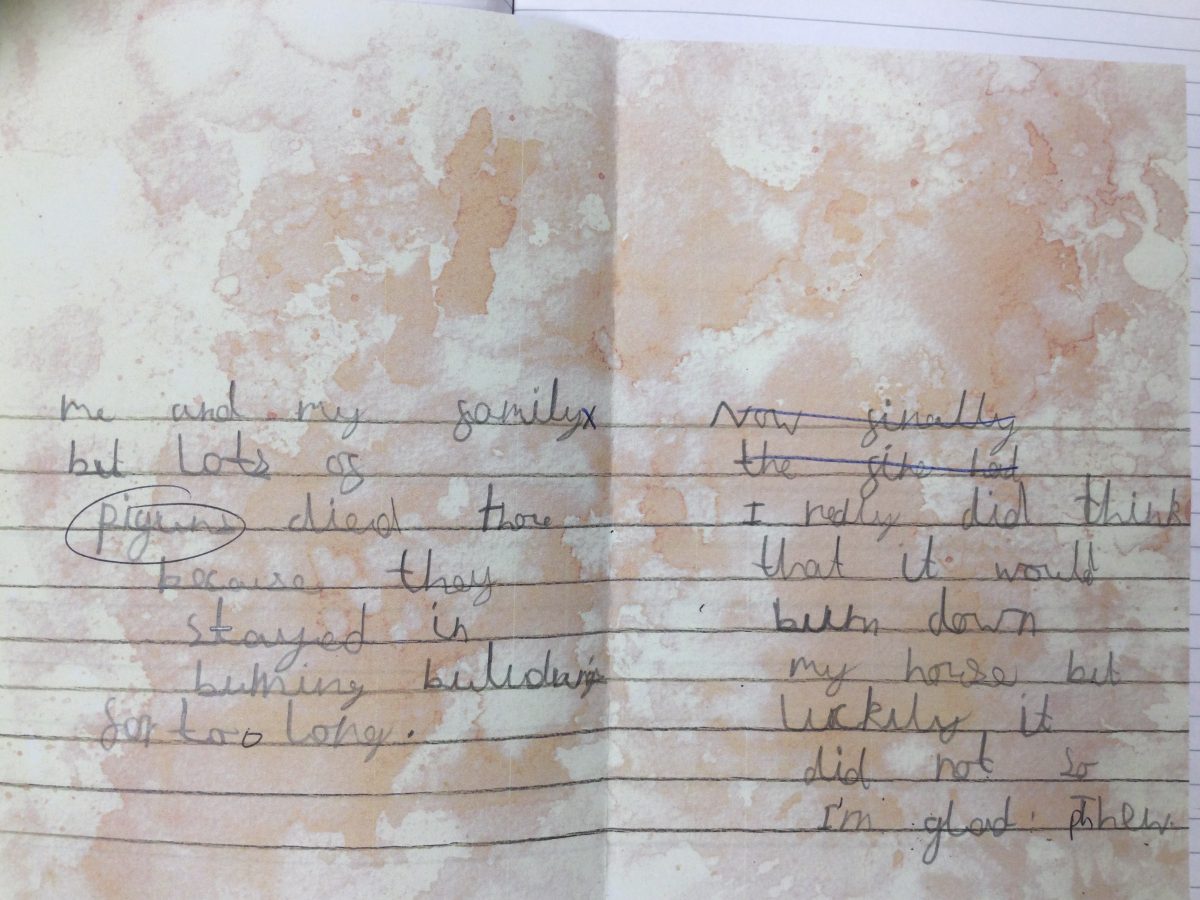 me and my family
but lots of
piguns died there
because they
stayed in
burning
for too long.
Now finally
the fire had
I really did think
that it would
burn down
my house but
luckily it
did not so
I'm glad. phhew.